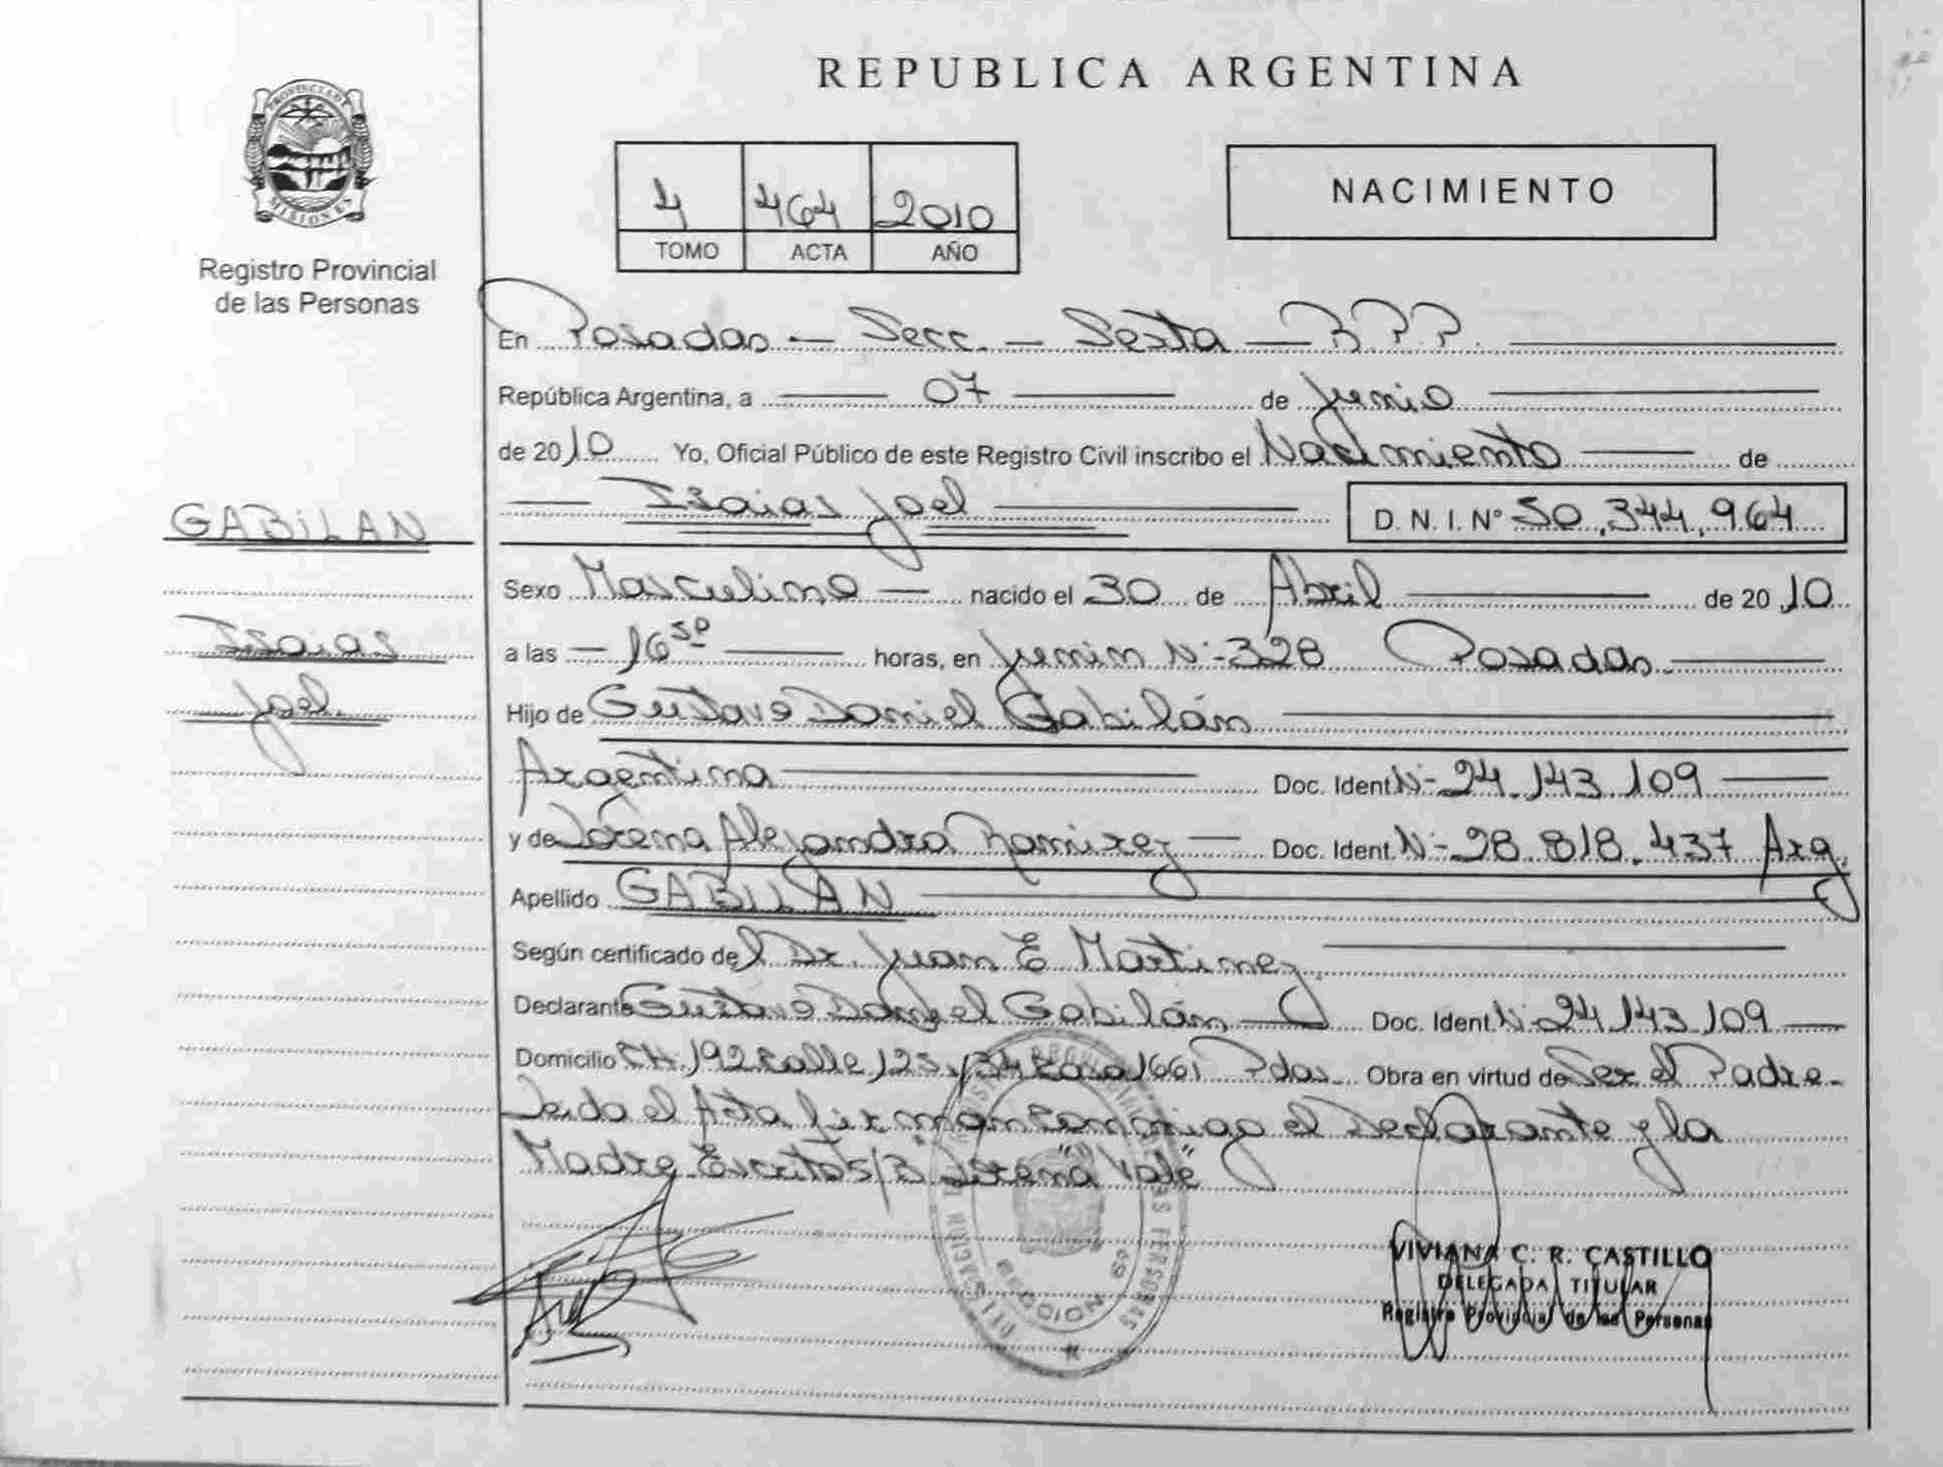 REPUBLICA ARGENTINA
PROVINCIA DE
MISIONES
Registro Provincial
de las Personas
4 464 2010
TOMO ACTA AÑO
NACIMIENTO
En Posadas — Secc. — Sexta — R.P.P.
República Argentina, a 07 de Junio
de 2010 Yo, Oficial Público de este Registro Civil inscribo el Nacimiento de
Isaias Joel D. N. I. N° 50.344.964
GABILAN
Isaias
Joel
Sexo Masculino nacido el 30 de Abril de 2010
a las 16 50 horas, en Junin N° 328 Posadas
Hijo de Gustavo Daniel Gabilán
Argentina Doc. Ident. N° 24.143.109
y de Lorena Alejandra Ramirez Doc. Ident. N° 28.818.437 Arg.
Apellido GABILAN
Según certificado del Dr. Juan E Martinez
Declarante Gustavo Daniel Gabilán Doc. Ident. N° 24.143.109
Domicilio CH. 192 calle 125 y 134 casa 1661 Pdas. Obra en virtud de Ser el Padre
Leida el Acta firman conmigo el Declarante y la
Madre "Lorena" Vale
VIVIANA C. R. CASTILLO
DELEGADA TITULAR
Registro Provincial de las Personas